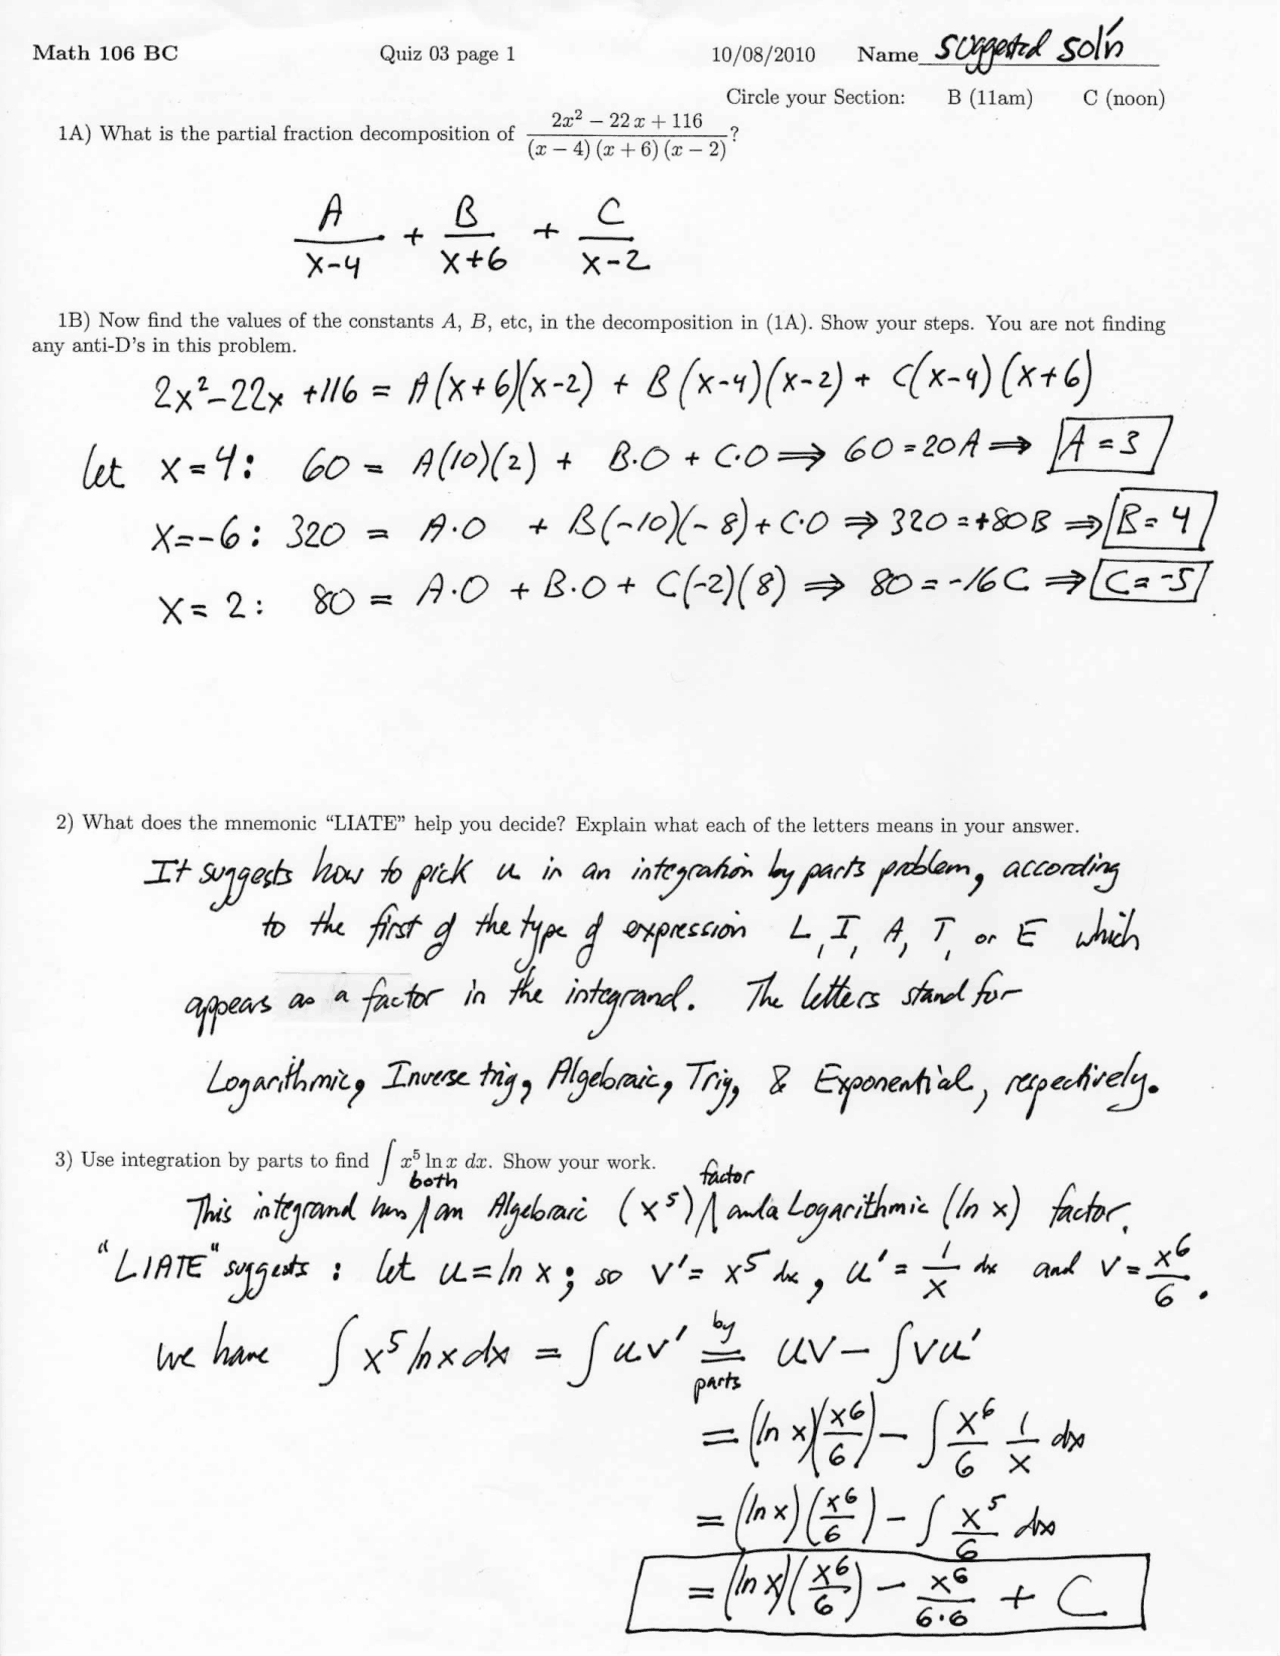 Math 106 BC Quiz 03 page 1 10/08/2010 Name suggested sol'n
Circle your Section: B (11am) C (noon)
1A) What is the partial fraction decomposition of (2x² − 22x + 116)/((x − 4)(x + 6)(x − 2))?
A/(x-4) + B/(x+6) + C/(x-2)
1B) Now find the values of the constants A, B, etc, in the decomposition in (1A). Show your steps. You are not finding
any anti-D's in this problem.
2x²-22x +116 = A(x+6)(x-2) + B(x-4)(x-2) + C(x-4)(x+6)
let x=4: 60 = A(10)(2) + B·0 + C·0 ⇒ 60=20A ⇒ A=3
x=-6: 320 = A·0 + B(-10)(-8)+C·0 ⇒ 320=+80B ⇒ B=4
x=2: 80 = A·0 + B·0 + C(-2)(8) ⇒ 80=-16C ⇒ C=-5
2) What does the mnemonic “LIATE” help you decide? Explain what each of the letters means in your answer.
It suggests how to pick u in an integration by parts problem, according
to the first of the type of expression L, I, A, T, or E which
appears as a factor in the integrand. The letters stand for
Logarithmic, Inverse trig, Algebraic, Trig, & Exponential, respectively.
3) Use integration by parts to find ∫ x⁵ ln x dx. Show your work.
This integrand has both an Algebraic (x⁵) factor and a Logarithmic (ln x) factor.
"LIATE" suggests: let u=ln x; so v'= x⁵ dx, u'= 1/x dx and v= x⁶/6.
we have ∫ x⁵ ln x dx = ∫ uv' by parts = uv - ∫ vu'
= (ln x)(x⁶/6) - ∫ x⁶/6 1/x dx
= (ln x)(x⁶/6) - ∫ x⁵/6 dx
= (ln x)(x⁶/6) - x⁶/(6·6) + C